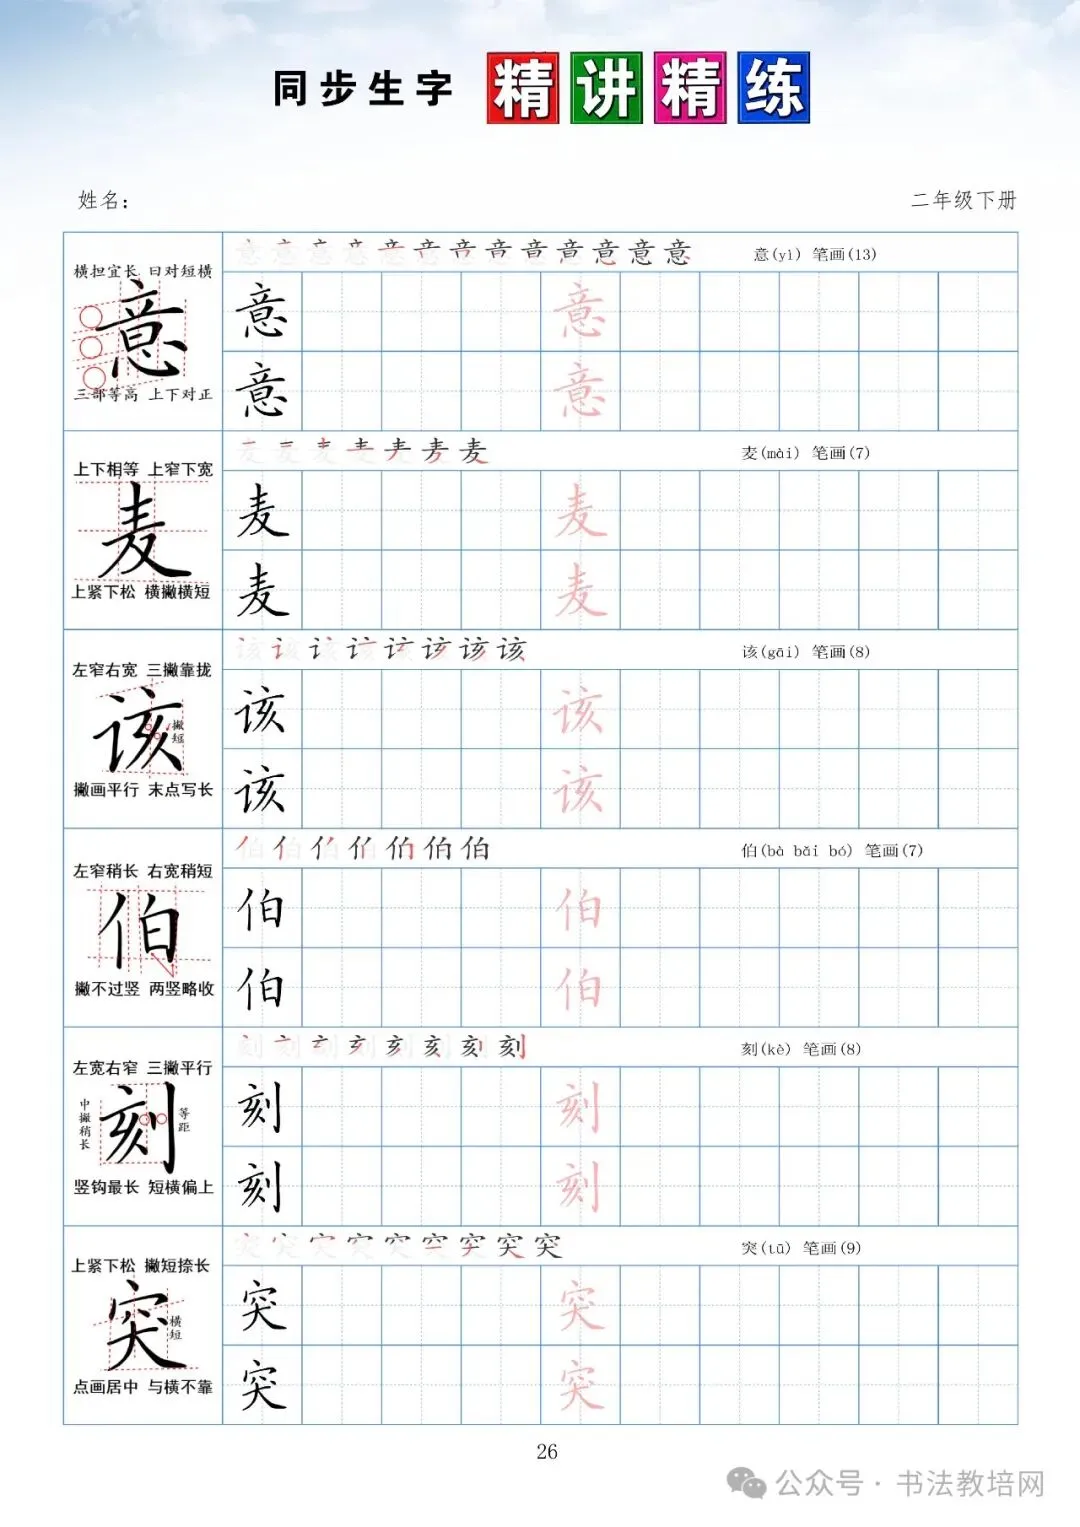 同步生字 精讲精练
姓名：
二年级下册
横担宜长 日对短横
意
三部等高 上下对正
意 意 意 意 意 意 意 意 意 意 意 意 意
意(yì) 笔画(13)
意 意
意 意
上下相等 上窄下宽
麦
上紧下松 横撇横短
麦 麦 麦 麦 麦 麦 麦
麦(mài) 笔画(7)
麦 麦
麦 麦
左窄右宽 三撇靠拢
该
撇短
撇画平行 末点写长
该 该 该 该 该 该 该 该
该(gāi) 笔画(8)
该 该
该 该
左窄稍长 右宽稍短
伯
撇不过竖 两竖略收
伯 伯 伯 伯 伯 伯 伯
伯(bà bǎi bó) 笔画(7)
伯 伯
伯 伯
左宽右窄 三撇平行
中撇稍长
刻
等距
竖钩最长 短横偏上
刻 刻 刻 刻 刻 刻 刻 刻
刻(kè) 笔画(8)
刻 刻
刻 刻
上紧下松 撇短捺长
突
横短
点画居中 与横不靠
突 突 突 突 突 突 突 突 突
突(tū) 笔画(9)
突 突
突 突
26
公众号 · 书法教培网